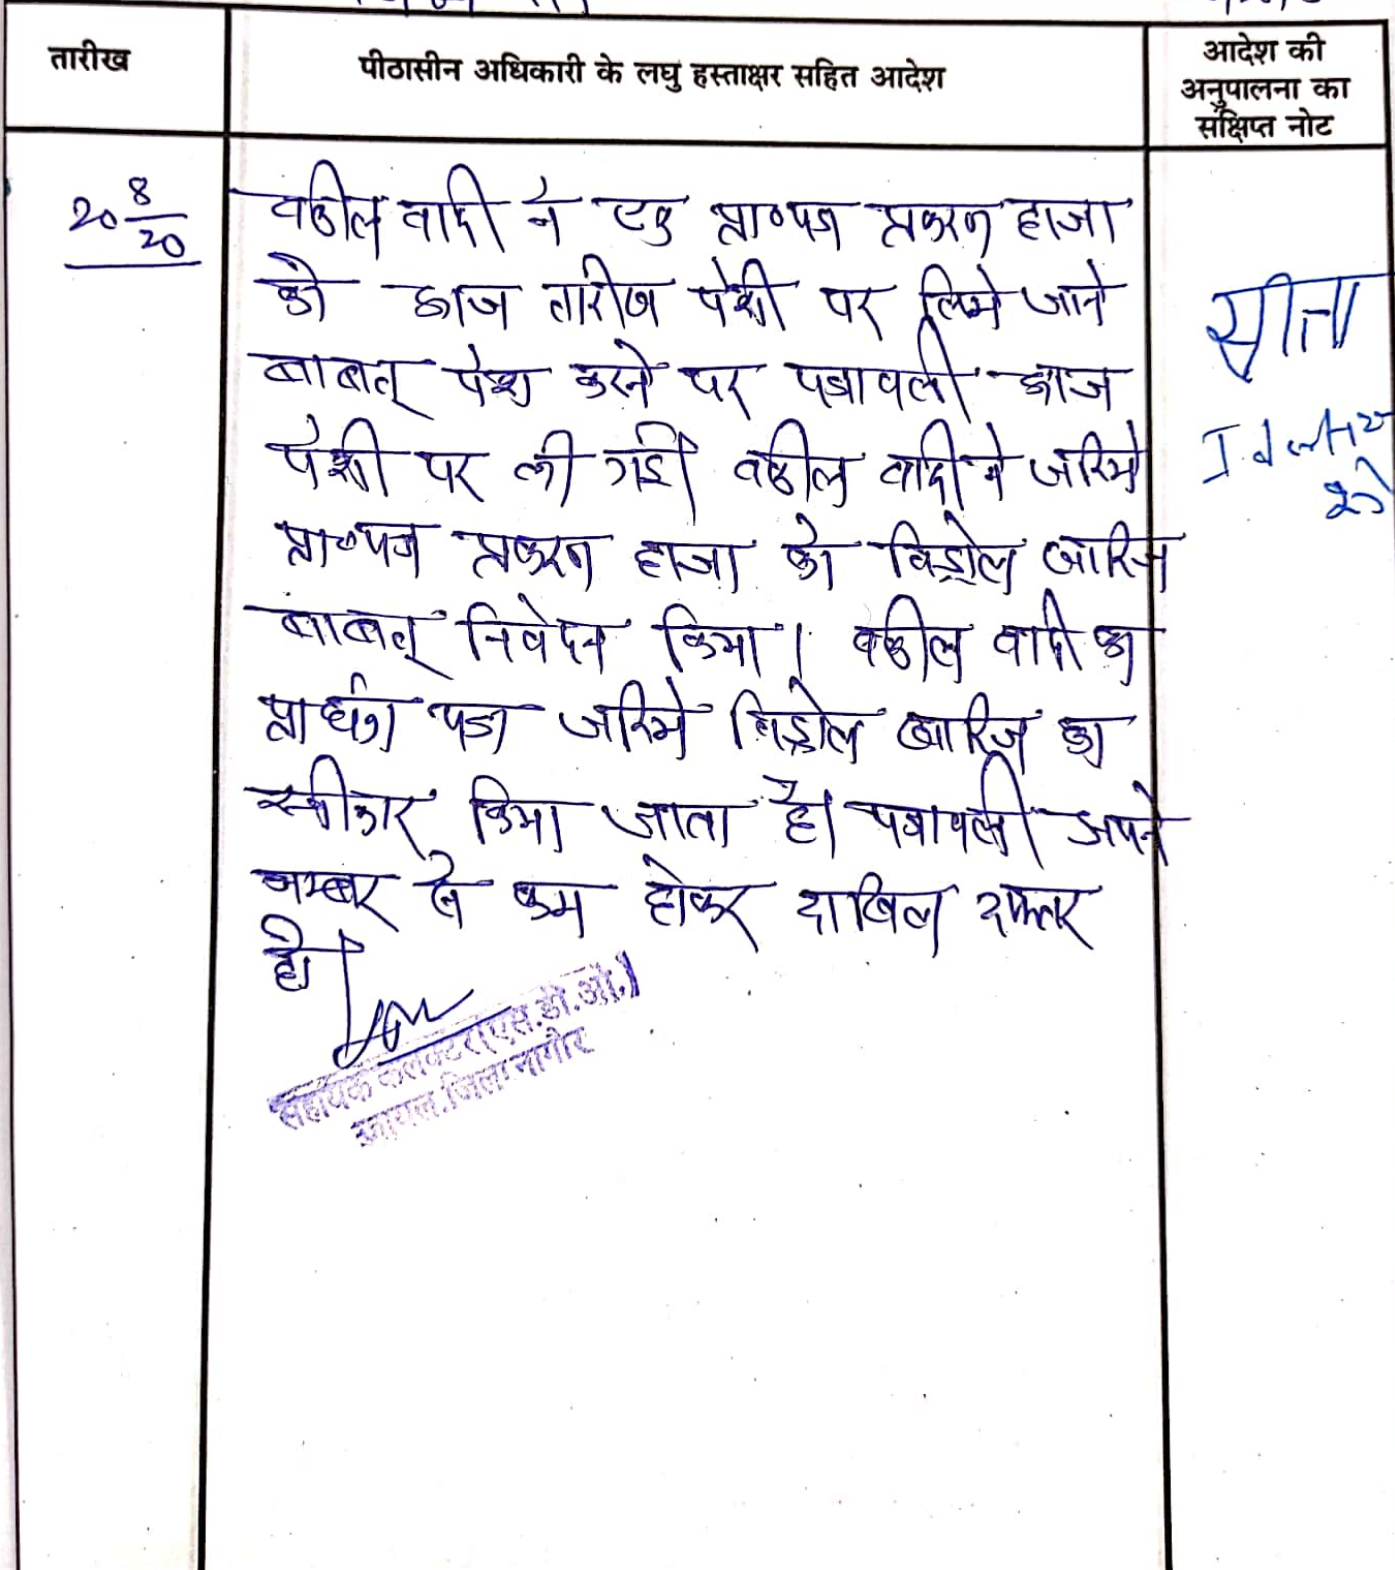 तारीख
पीठासीन अधिकारी के लघु हस्ताक्षर सहित आदेश
आदेश की
अनुपालना का
संक्षिप्त नोट
20 8/20
वकील वादी ने एक प्रा०पत्र प्रकरण हाजा
को आज तारीख पेशी पर लिये जाने
बाबत् पेश करने पर पत्रावली आज
पेशी पर ली गई। वकील वादी ने जरिये
प्रा०पत्र प्रकरण हाजा को विड्रोल खारिज
बाबत् निवेदन किया। वकील वादी का
प्रार्थना पत्र जरिये विड्रोल खारिज का
स्वीकार किया जाता है। पत्रावली अपने
नम्बर से कम होकर दाखिल दफ्तर
हो।
सीता
सहायक कलक्टर(एस.डी.ओ.)
जायल, जिला नागौर